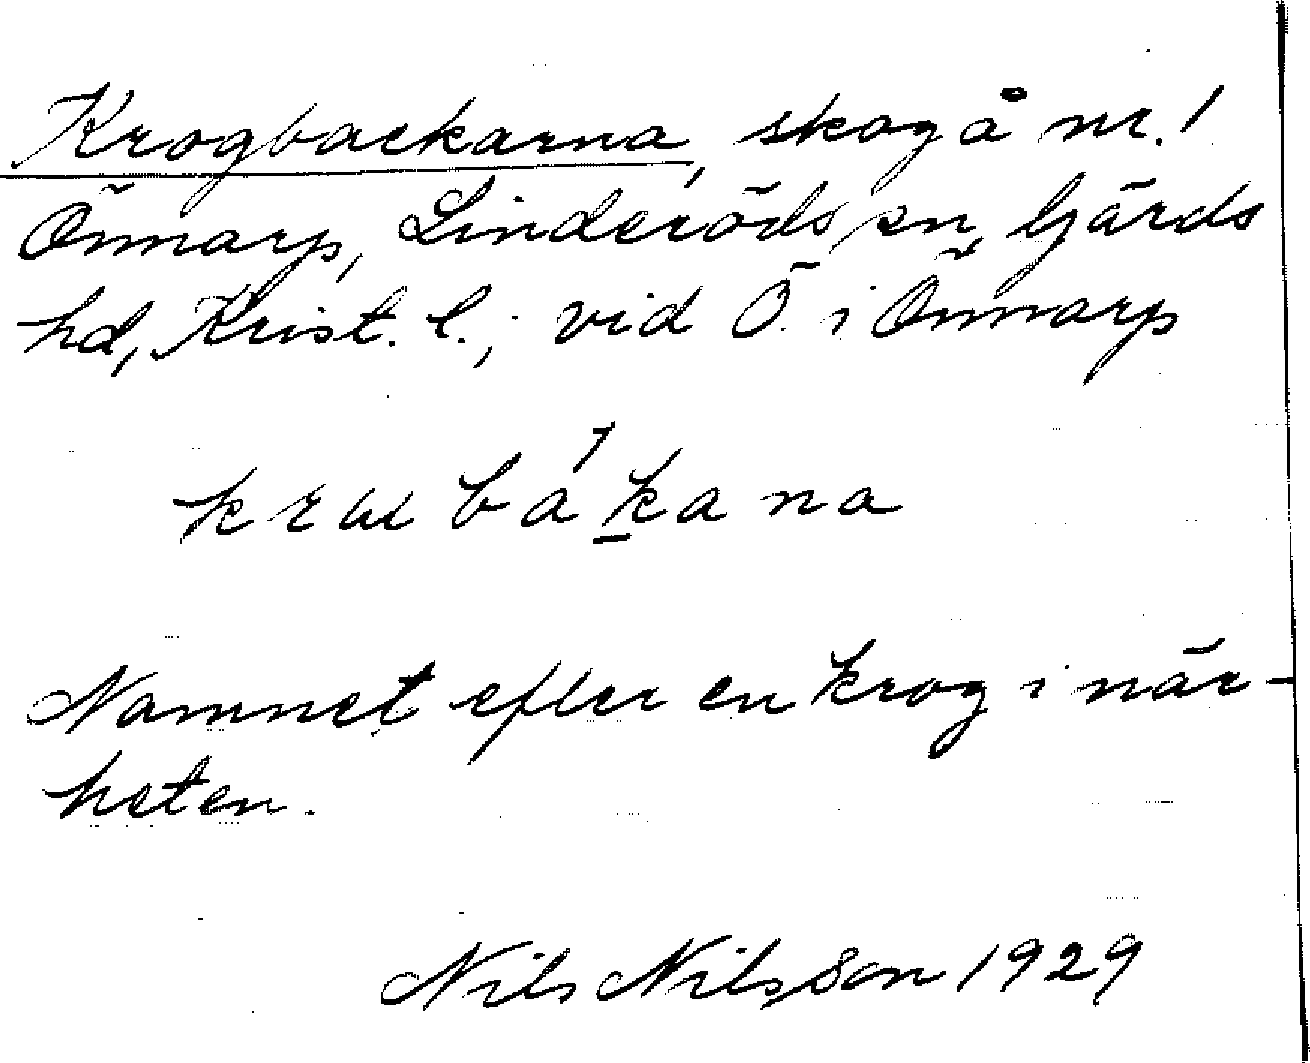 Krogbackarna, skog å nr. 1
Önnarp, Linderöds sn, Gärds
hd, Krist. l.; vid Ö. i Önnarp
krɯbákana
Namnet efter en krog i när-
heten.
Nils Nilsson 1929